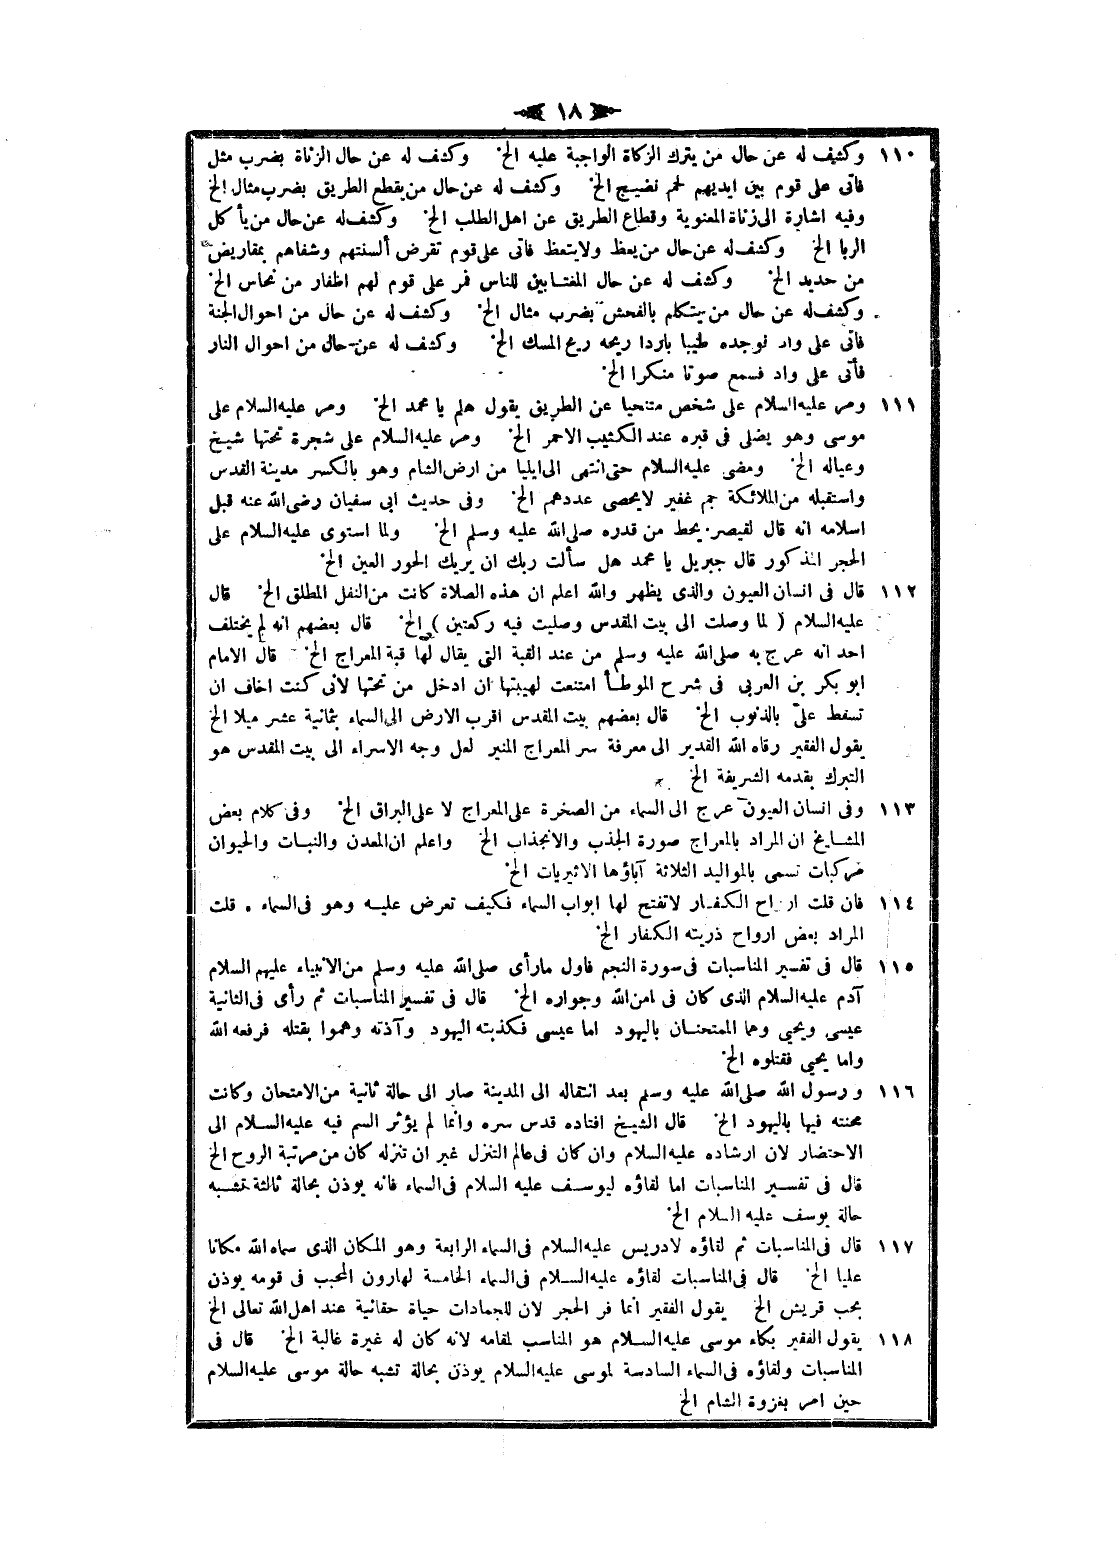 ١٨
١١٠ وكشف له عن حال من يترك الزكاة الواجبة عليه الخ وكشف له عن حال الزناة بضرب مثل
فاتى على قوم بين ايديهم لحم نضيج الخ وكشف له عن حال من يقطع الطريق بضرب مثال الخ
وفيه اشارة الى زناة المعنوية وقطاع الطريق عن اهل الطلب الخ وكشف له عن حال من يأكل
الربا الخ وكشف له عن حال من يعظ ولا يتعظ فاتى على قوم تقرض ألسنتهم وشفاهم بمقاريض
من حديد الخ وكشف له عن حال المغتابين للناس فمر على قوم لهم اظفار من نحاس الخ
وكشف له عن حال من يتكلم بالفحش بضرب مثال الخ وكشف له عن حال من احوال الجنة
فاتى على واد فوجده طيبا باردا ريحه ريح المسك الخ وكشف له عن حال من احوال النار
فأتى على واد فسمع صوتا منكرا الخ
١١١ ومر عليه السلام على شخص متنحيا عن الطريق يقول هلم يا محمد الخ ومر عليه السلام على
موسى وهو يضلى فى قبره عند الكثيب الاحمر الخ ومر عليه السلام على شجرة تحتها شيخ
وعياله الخ ومضى عليه السلام حتى انتهى الى ايليا من ارض الشام وهو بالكسر مدينة القدس
واستقبله من الملائكة جم غفير لا يحصى عددهم الخ وفى حديث ابى سفيان رضى الله عنه قبل
اسلامه انه قال لقيصر يحط من قدره صلى الله عليه وسلم الخ ولما استوى عليه السلام على
الحجر المذكور قال جبريل يا محمد هل سألت ربك ان يريك الحور العين الخ
١١٢ قال فى انسان العيون والذى يظهر والله اعلم ان هذه الصلاة كانت من النفل المطلق الخ قال
عليه السلام ( لما وصلت الى بيت المقدس وصليت فيه ركعتين ) الخ قال بعضهم انه لم يختلف
احد انه عرج به صلى الله عليه وسلم من عند القبة التى يقال لها قبة المعراج الخ قال الامام
ابو بكر بن العربى فى شرح الموطأ امتنعت لهيبتها ان ادخل من تحتها لانى كنت اخاف ان
تسقط علىّ بالذنوب الخ قال بعضهم بيت المقدس اقرب الارض الى السماء بثمانية عشر ميلا الخ
يقول الفقير رقاه الله القدير الى معرفة سر المعراج المنير لعل وجه الاسراء الى بيت المقدس هو
التبرك بقدمه الشريفة الخ
١١٣ وفى انسان العيون عرج الى السماء من الصخرة على المعراج لا على البراق الخ وفى كلام بعض
المشايخ ان المراد بالمعراج صورة الجذب والانجذاب الخ واعلم ان المعدن والنبات والحيوان
مركبات تسمى بالمواليد الثلاثة آباؤها الاثيريات الخ
١١٤ فان قلت ارواح الكفار لا تفتح لها ابواب السماء فكيف تعرض عليه وهو فى السماء . قلت
المراد بعض ارواح ذريته الكفار الخ
١١٥ قال فى تفسير المناسبات فى سورة النجم فاول ما رأى صلى الله عليه وسلم من الانبياء عليهم السلام
آدم عليه السلام الذى كان فى امن الله وجواره الخ قال فى تفسير المناسبات ثم رأى فى الثانية
عيسى ويحيى وهما الممتحنان باليهود اما عيسى فكذبته اليهود وآذته وهموا بقتله فرفعه الله
واما يحيى فقتلوه الخ
١١٦ ورسول الله صلى الله عليه وسلم بعد انتقاله الى المدينة صار الى حالة ثانية من الامتحان وكانت
محنته فيها باليهود الخ قال الشيخ افتاده قدس سره وانما لم يؤثر السم فيه عليه السلام الى
الاحتضار لان ارشاده عليه السلام وان كان فى عالم التنزل غير ان تنزله كان من مرتبة الروح الخ
قال فى تفسير المناسبات اما لقاؤه ليوسف عليه السلام فى السماء فانه يوذن بحالة ثالثة تشبه
حالة يوسف عليه السلام الخ
١١٧ قال فى المناسبات ثم لقاؤه لادريس عليه السلام فى السماء الرابعة وهو المكان الذى سماه الله مكانا
عليا الخ قال فى المناسبات لقاؤه عليه السلام فى السماء الخامسة لهارون المحبب فى قومه يوذن
بحب قريش الخ يقول الفقير انما فر الحجر لان للجمادات حياة حقانية عند اهل الله تعالى الخ
١١٨ يقول الفقير بكاء موسى عليه السلام هو المناسب لمقامه لانه كان له غيرة غالبة الخ قال فى
المناسبات ولقاؤه فى السماء السادسة لموسى عليه السلام يوذن بحالة تشبه حالة موسى عليه السلام
حين امر بغزوة الشام الخ